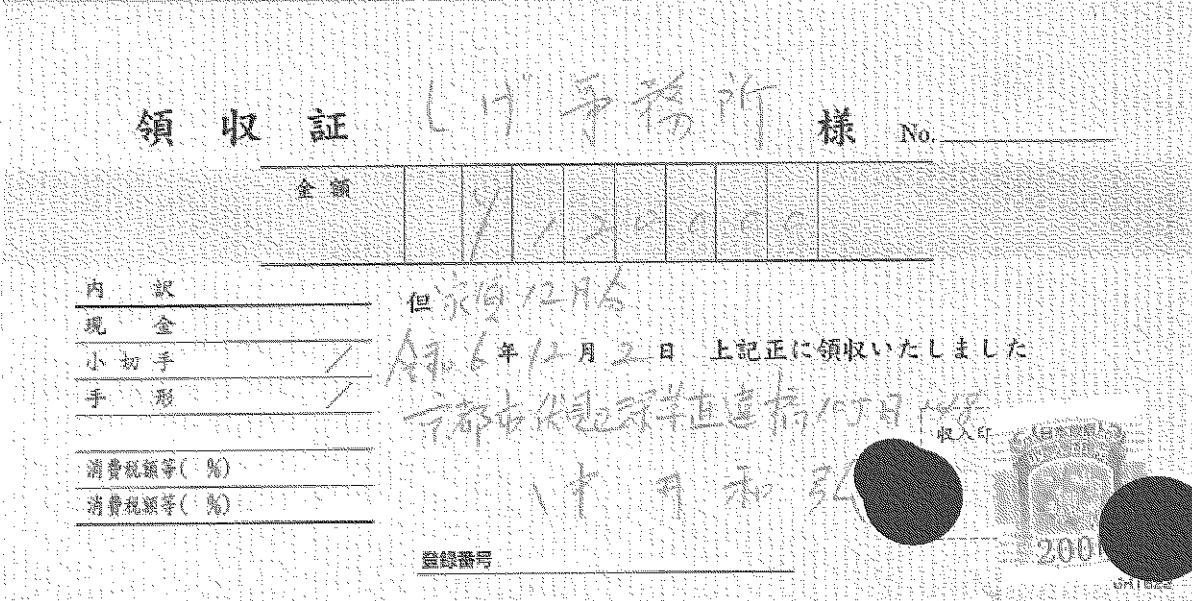 領収証 しげ事務所 様 No.
金額 ¥120000
内訳
現金
小切手
手形
消費税額等( %)
消費税額等( %)
但 家賃12月分
令和6年12月2日 上記正に領収いたしました
京都市伏見区深草直違橋
収入印
中 和弘
200
登録番号